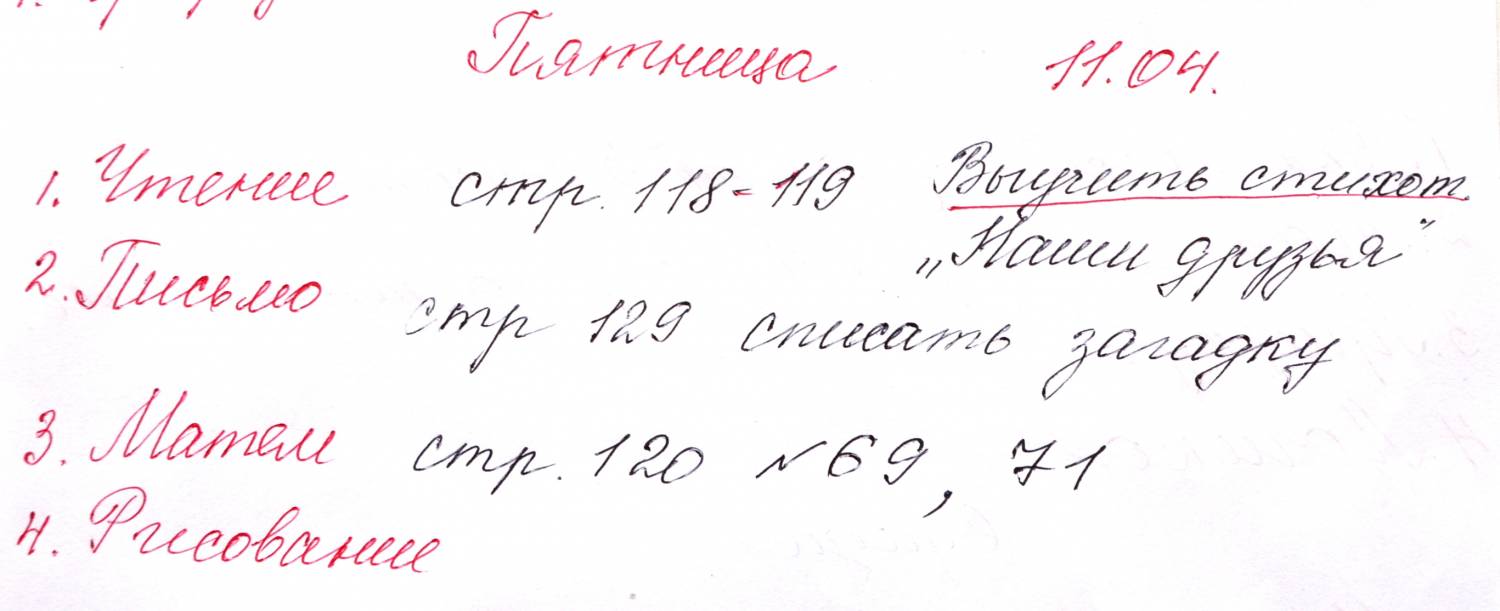 Пятница 11.04.
1. Чтение стр. 118-119 Выучить стихот.
„Наши друзья"
2. Письмо стр 129 списать загадку
3. Матем стр. 120 №69, 71
4. Рисование